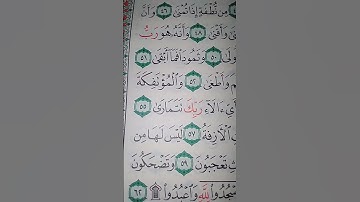 مِن نُّطْفَةٍ إِذَا تُمْنَىٰ ٤٦ وَأَنَّ
ىٰ وَأَقْنَىٰ ٤٨ وَأَنَّهُۥ هُوَ رَبُّ
ولَىٰ ٥٠ وَثَمُودَا۟ فَمَآ أَبْقَىٰ ٥١
مَ وَأَطْغَىٰ ٥٢ وَٱلْمُؤْتَفِكَةَ
أَىِّ ءَالَآءِ رَبِّكَ تَتَمَارَىٰ ٥٥
ٱلْءَازِفَةُ ٥٧ لَيْسَ لَهَا مِن
ثِ تَعْجَبُونَ ٥٩ وَتَضْحَكُونَ
سْجُدُوا۟ لِلَّهِ وَٱعْبُدُوا۟ ۩ ٦٢